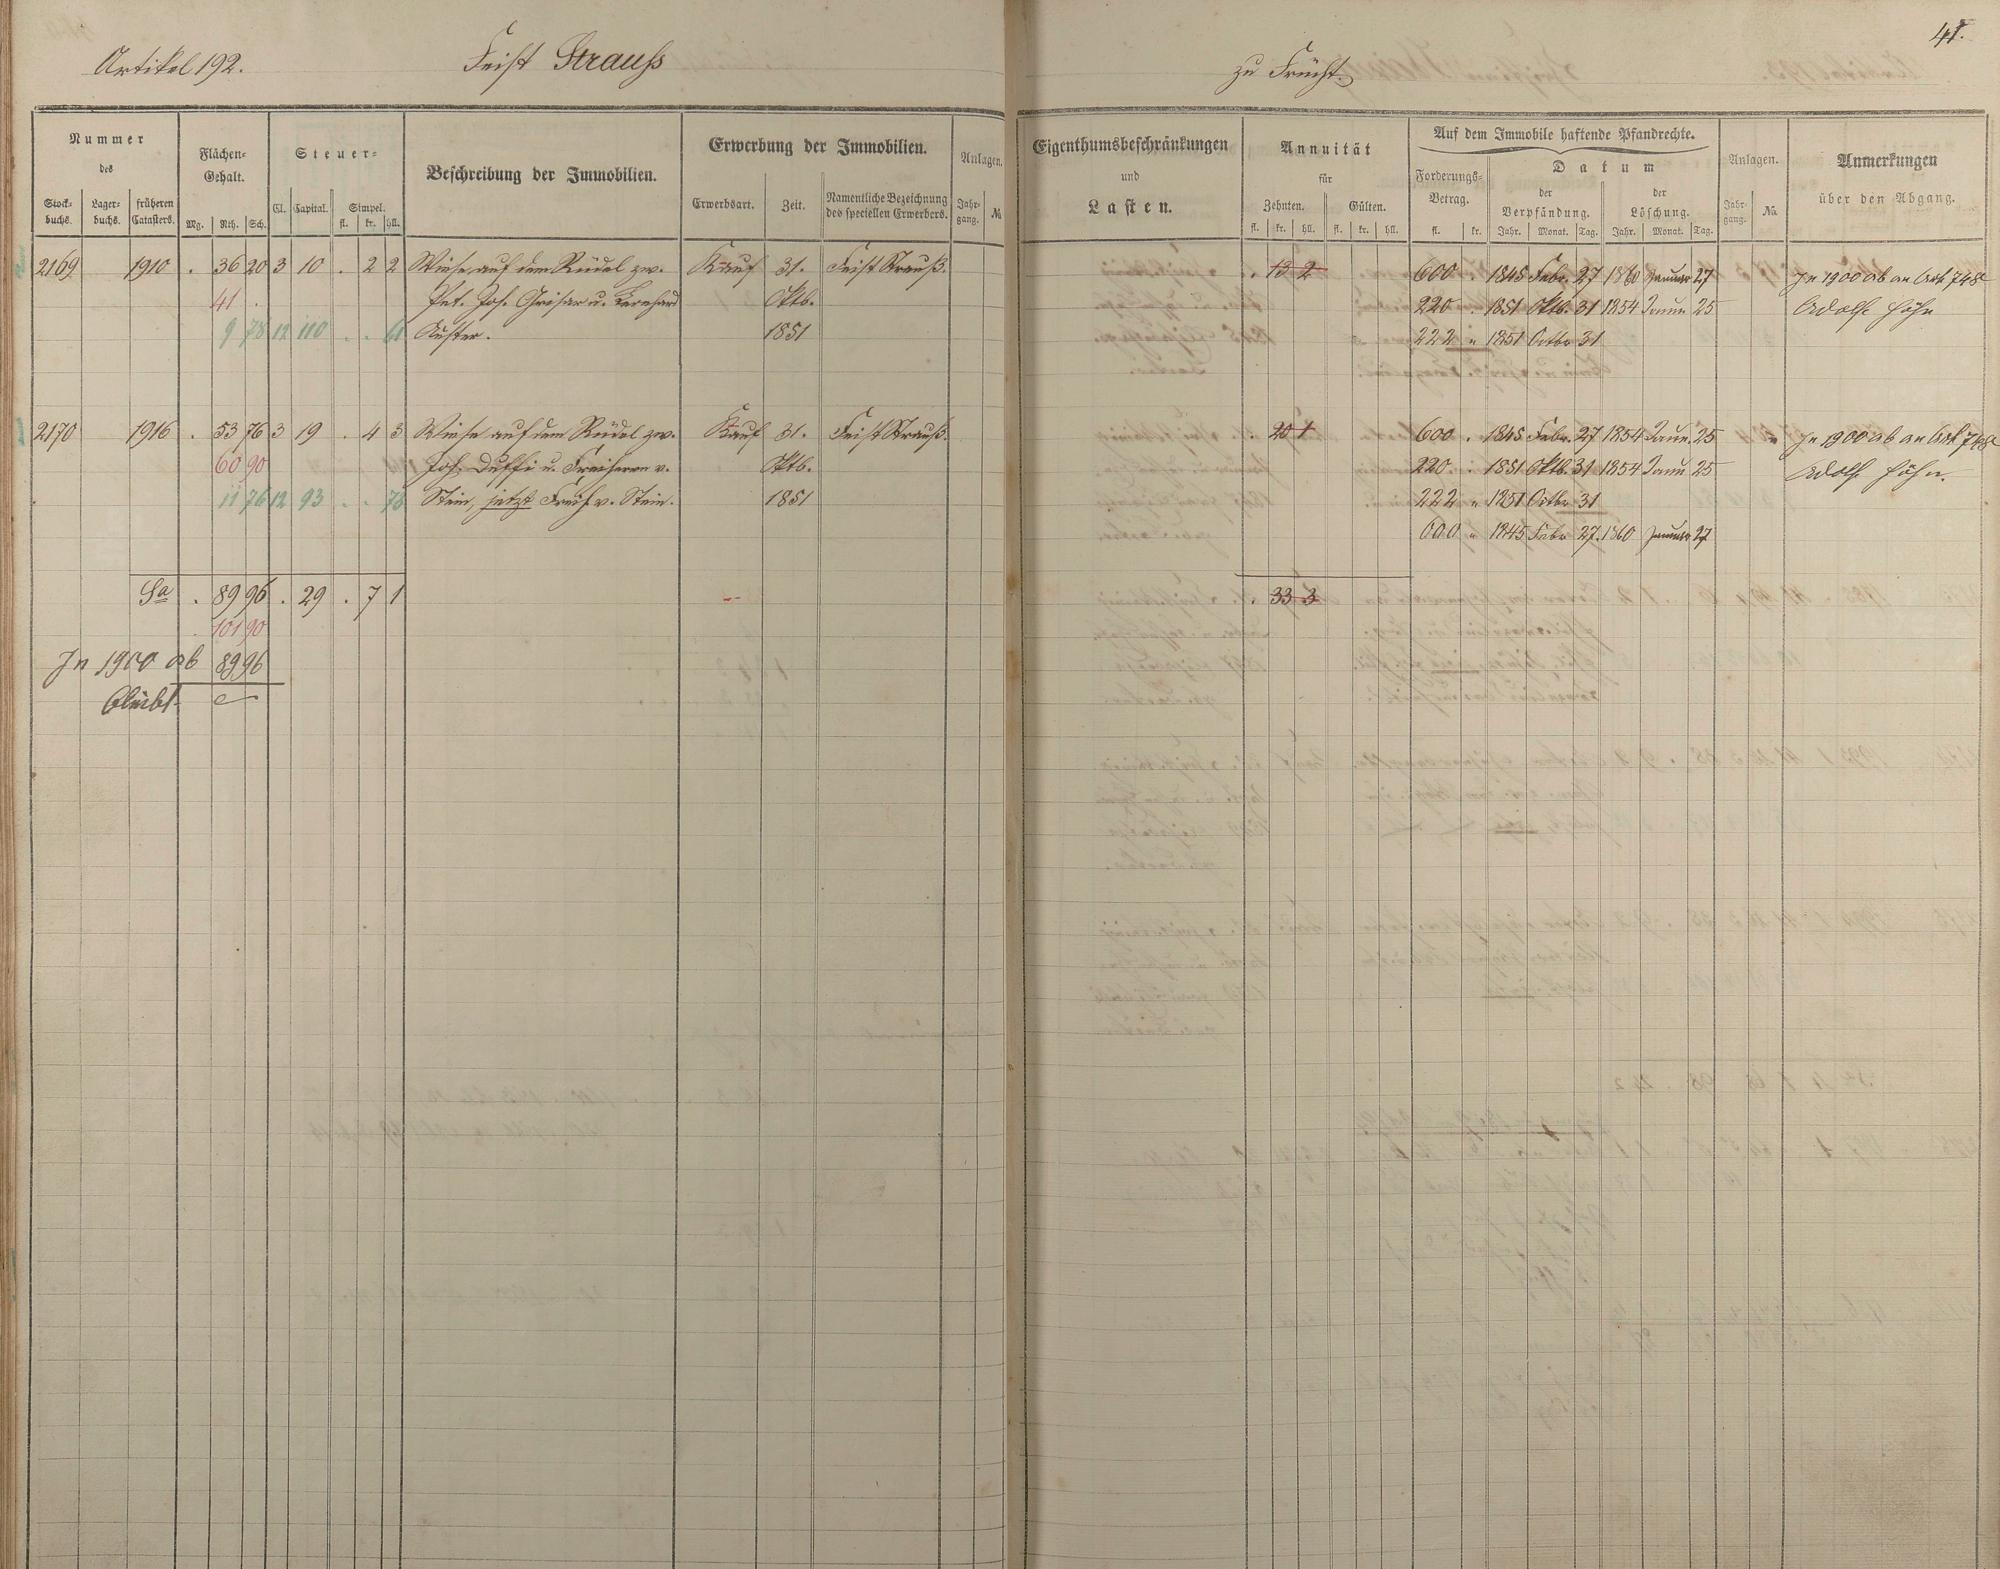 Artikel 192. Feist Strauss
Nummer des
Stockbuchs. Lagerbuchs. früheren Catasters.
Flächen-Gehalt.
Mg. Rth. Sch.
Steuer-
Cl. Capital. Simpel.
fl. kr. hll.
Beschreibung der Immobilien.
Erwerbung der Immobilien.
Erwerbsart. Zeit. Namentliche Bezeichnung des speciellen Erwerbers.
Anlagen.
Jahrgang. №
2169 1910 . 36 20 3 10 . 2 2 Wiese auf dem Rüdel zw. Kauf 31. Feist Strauß.
41 . Pet. Joh. Grisar u. Bernhard Oktb.
9 78 12 110 . . 61 Küster. 1851
2170 1916 . 53 76 3 19 . 4 3 Wiese auf dem Rüdel zw. Kauf 31. Feist Strauß.
60 90 Joh. Duffi u. Freiherrn v. Oktb.
11 76 12 93 . . 78 Stein, jetzt Freih. v. Stein. 1851
Sa . 89 96 . 29 . 7 1
101 90
In 1900 ab 89 96
bleibt
41.
zu Frücht.
Eigenthumsbeschränkungen und Lasten.
Annuität für
Zehnten. Gülten.
fl. kr. hll. fl. kr. hll.
Auf dem Immobile haftende Pfandrechte.
Forderungs-Betrag. Datum
fl. kr. der Verpfändung. der Löschung.
Jahr. Monat. Tag. Jahr. Monat. Tag.
Anlagen.
Jahrgang. No.
Anmerkungen über den Abgang.
. 13 2 600 . 1845 Febr. 27 1860 Januar 27 In 1900 ab an Art 748
220 . 1851 Oktb. 31 1854 Janu. 25 Adolf Höhn
222 " 1851 Octbr 31
. 20 1 600 . 1845 Febr. 27 1854 Janu. 25 In 1900 ab an Art 748
220 . 1851 Oktb. 31 1854 Janu. 25 Adolf Höhn.
222 " 1851 Octbr 31
600 " 1845 Febr 27. 1860 Januar 27
. 33 3